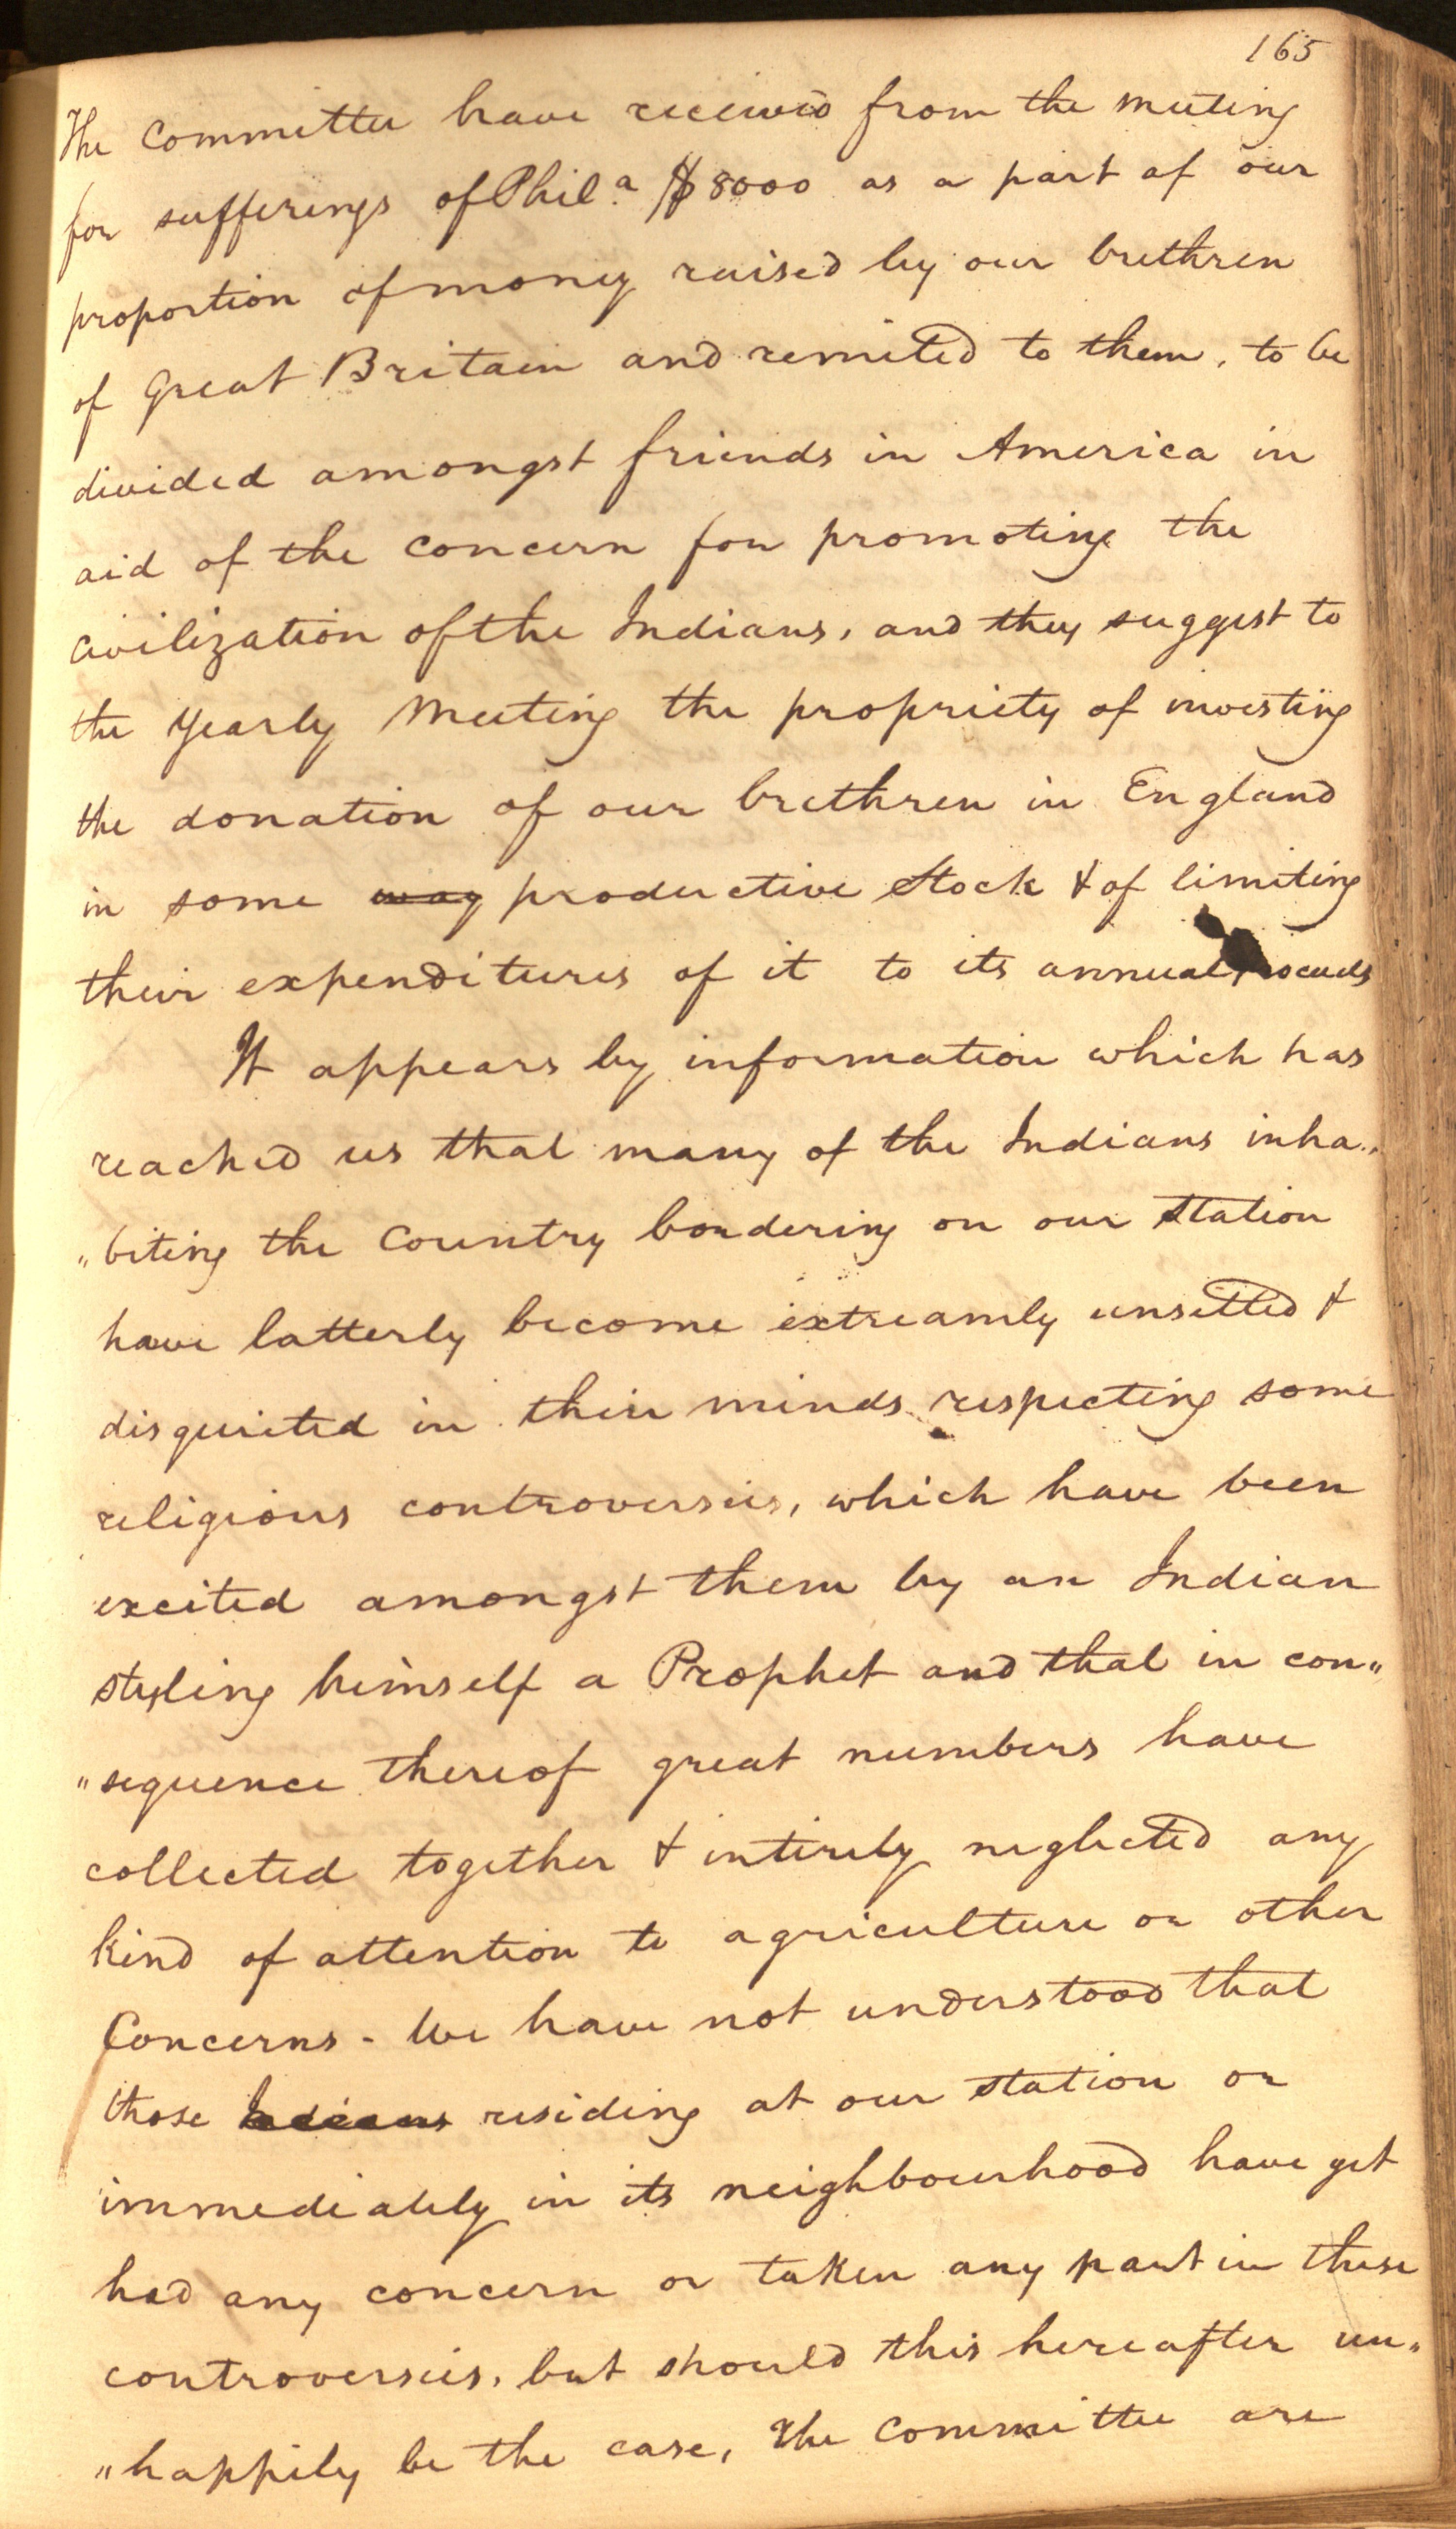 165
The Committee have received from the meeting
for sufferings of Phil.a $8000 as a part of our
proportion of money raised by our brethren
of Great Britain and remited to them, to be
divided amongst friends in America in
aid of the concern for promoting the
civilization of the Indians, and they suggest to
the Yearly Meeting the propriety of investing
the donation of our brethren in England
in some way productive Stock & of limiting
their expenditures of it to its annual proceeds
It appears by information which has
reached us that many of the Indians inha„
„biting the Country bordering on our Station
have latterly become extreamly unsettled &
disquieted in their minds respecting some
religious controversies, which have been
excited amongst them by an Indian
styling himself a Prophet and that in con„
„sequence thereof great numbers have
collected together & intirely neglected any
kind of attention to agriculture or other
Concerns - We have not understood that
those Indians residing at our station or
immediately in its neighbourhood have yet
had any concern or taken any part in these
controversies, but should this hereafter un„
„happily be the case, the Committee are